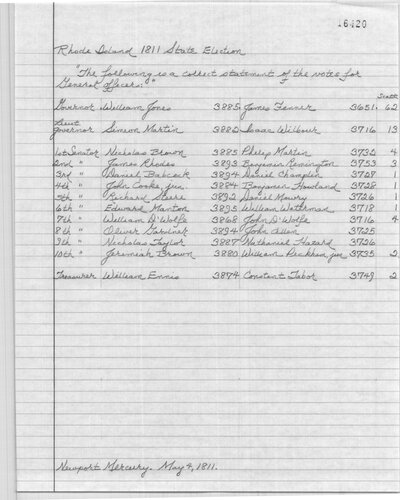 16420
Rhode Island 1811 State Election
"The following is a correct statement of the votes for
General Officers:"
Scatt
Governor William Jones 3885 James Fenner 3651 62
Lieut
Governor Simeon Martin 3882 Isaac Wilbour 3716 13
1st Senator Nicholas Brown 3885 Philip Martin 3732 4
2nd " James Rhodes 3893 Benjamin Remington 3753 3
3rd " Daniel Babcock 3894 Daniel Champlin 3708 1
4th " John Cooke, jun. 3884 Benjamin Howland 3728 1
5th " Richard Steere 3892 Daniel Mowry 3726 1
6th " Edward Manton 3895 William Waterman 3718 1
7th " William D'Wolfe 3868 John D'Wolfe 3716 4
8th " Oliver Gardner 3894 John Allen 3725
9th " Nicholas Taylor 3887 Nathaniel Hazard 3726
10th " Jeremiah Brown 3880 William Peckham jun 3735 2
Treasurer William Ennis 3874 Constant Tabor 3749 2
Newport Mercury. May 4, 1811.